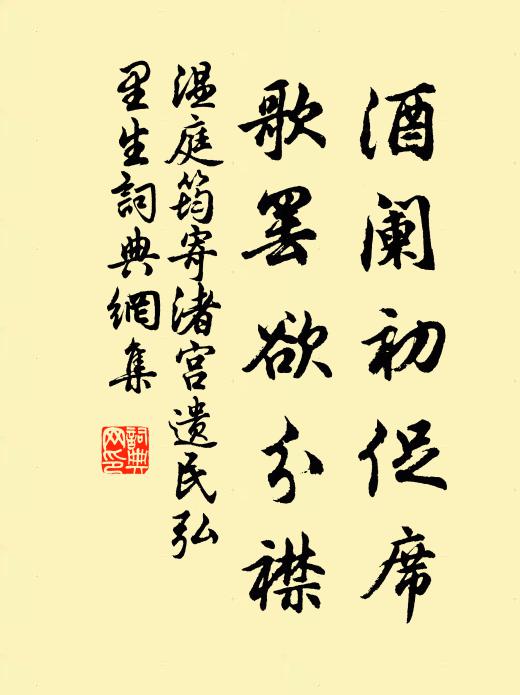 酒阑初促席
歌罢欲分襟
温庭筠寄渚宫遗民弘
里生詞典網集
詞典
网印